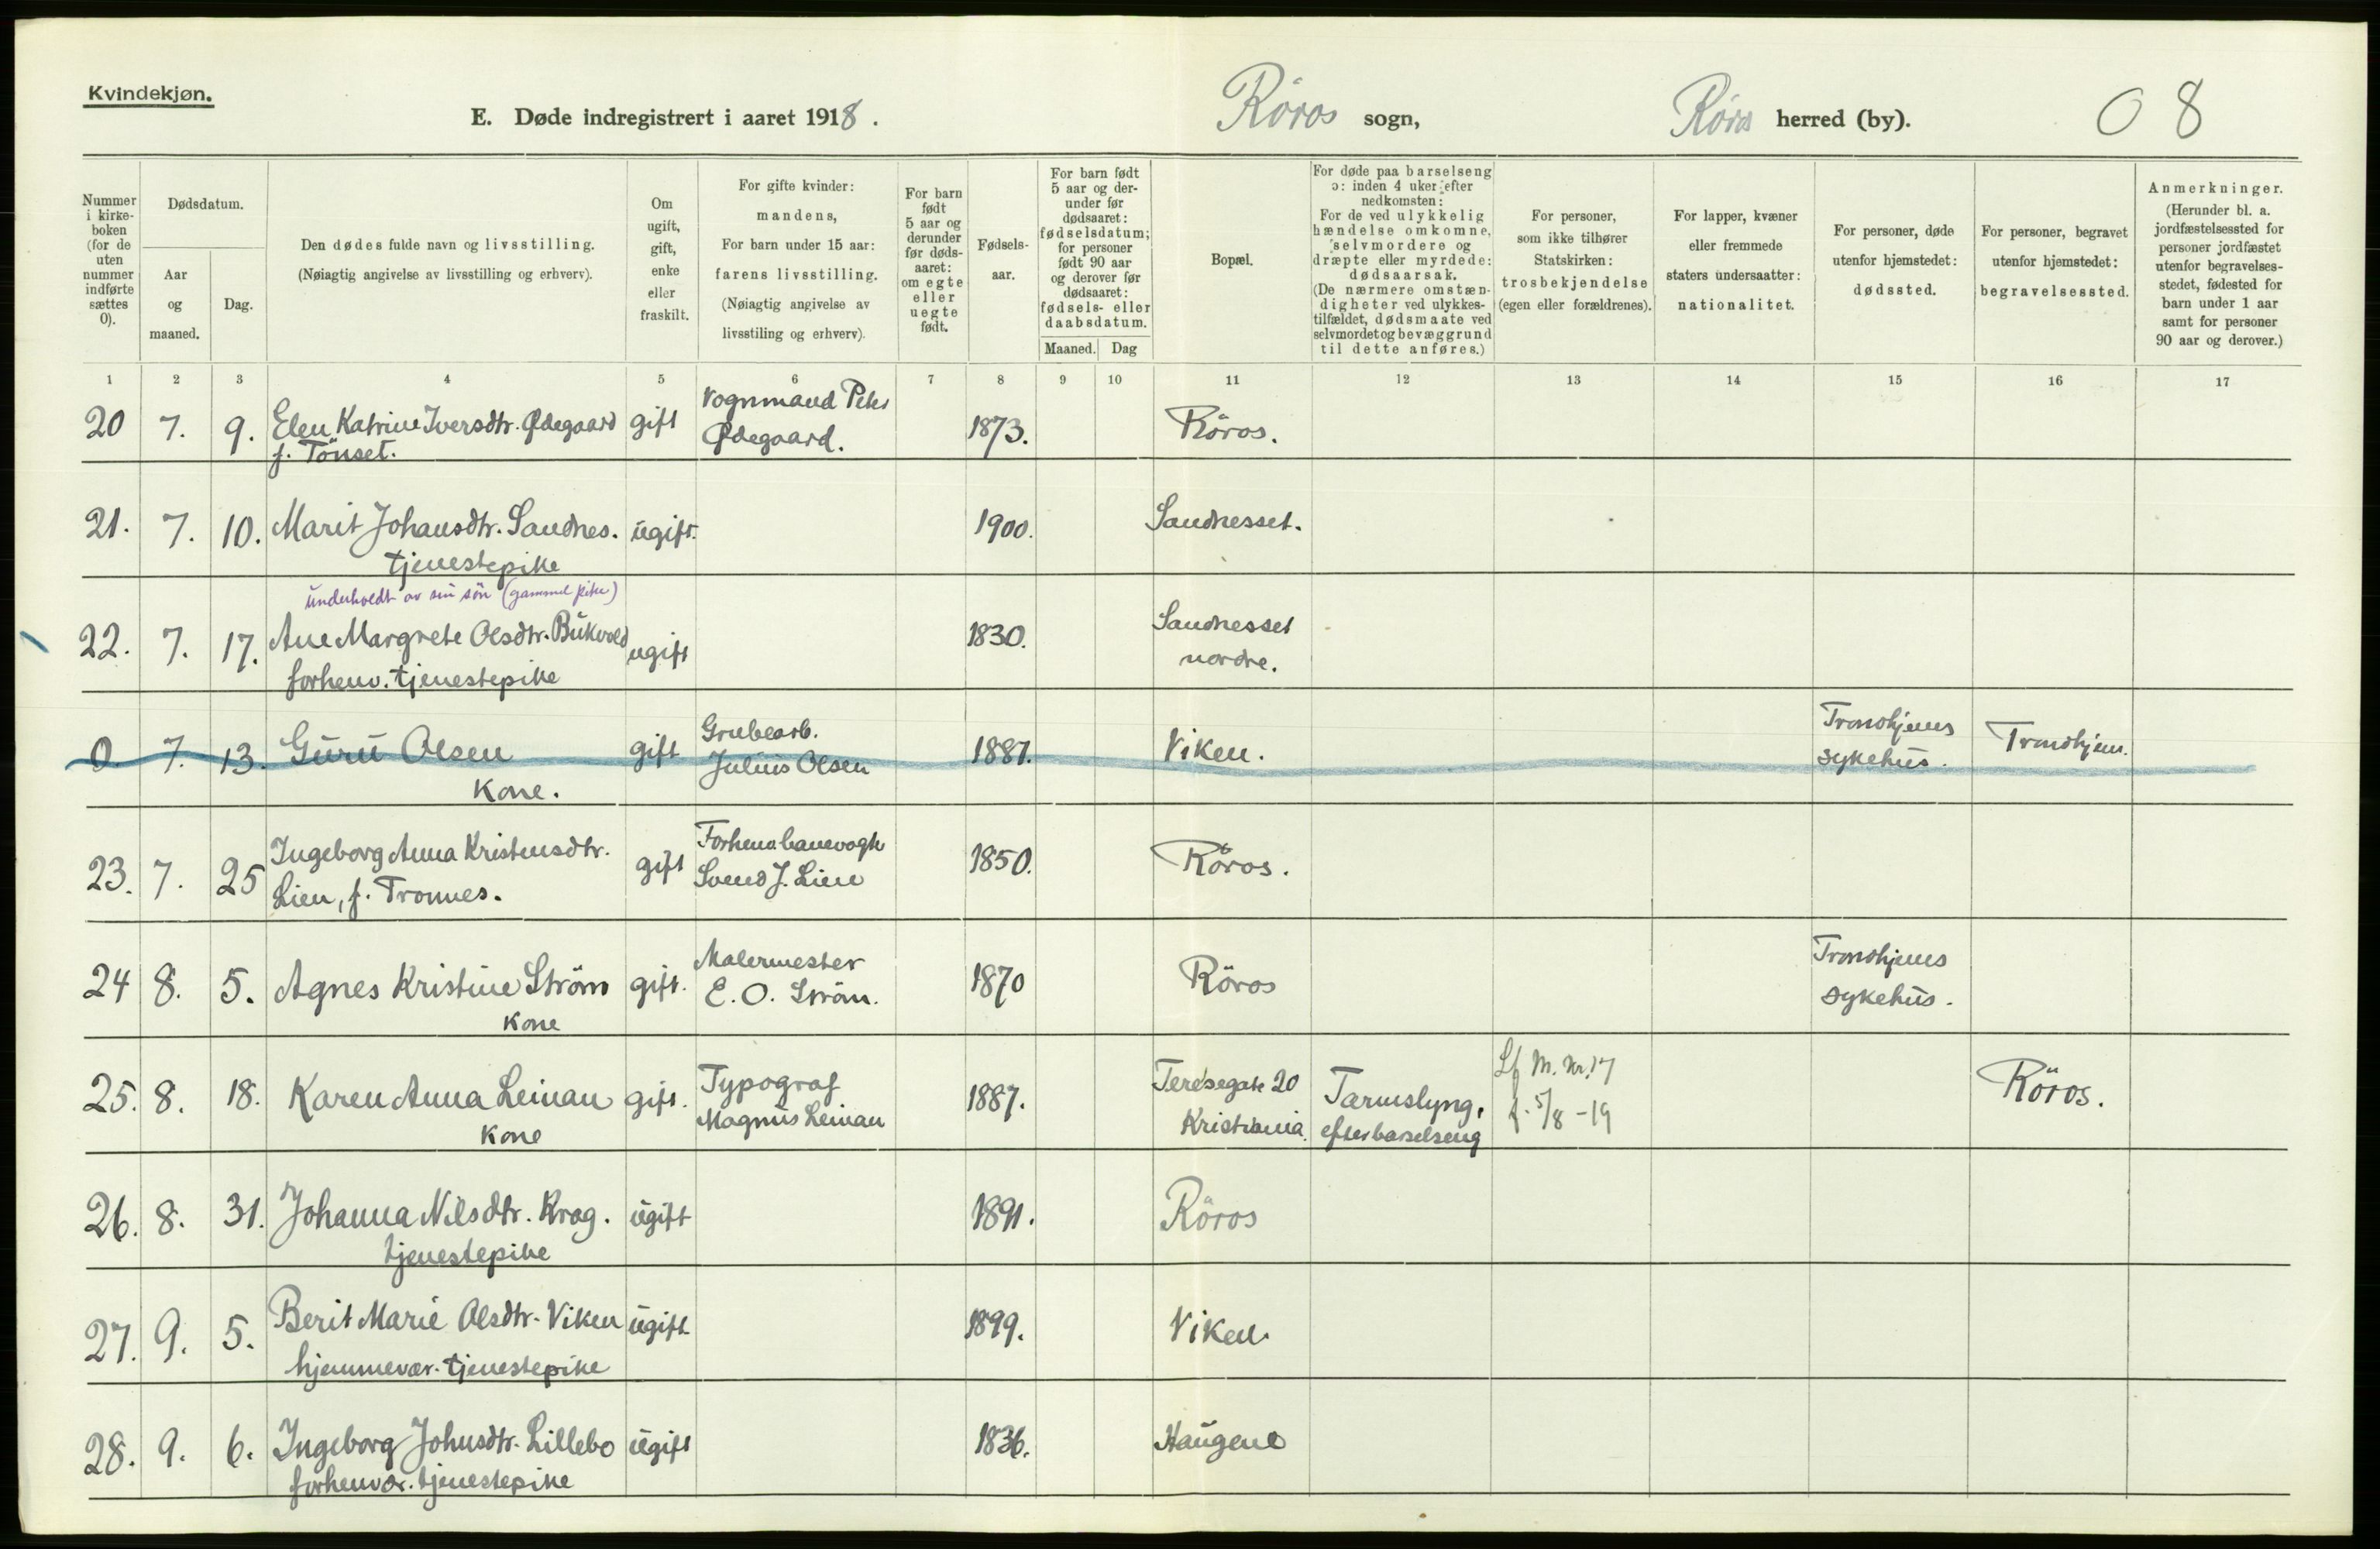 Kvindekjøn.
E. Døde indregistrert i aaret 1918. Röros sogn, Röros herred (by). 0 8
Nummer i kirkeboken (for de uten nummer indførte sættes 0).
Dødsdatum.
Aar og maaned.
Dag.
Den dødes fulde navn og livsstilling.
(Nøiagtig angivelse av livsstilling og erhverv).
Om ugift, gift, enke eller fraskilt.
For gifte kvinder:
mandens,
For barn under 15 aar:
farens livsstilling.
(Nøiagtig angivelse av
livsstiling og erhverv).
For barn født 5 aar og derunder før dødsaaret: om egte eller uegte født.
Fødselsaar.
For barn født 5 aar og derunder før dødsaaret: fødselsdatum; for personer født 90 aar og derover før dødsaaret: fødsels- eller daabsdatum.
Maaned. Dag
Bopæl.
For døde paa barselseng ɔ: inden 4 uker efter nedkomsten:
For de ved ulykkelig hændelse omkomne, selvmordere og dræpte eller myrdede: dødsaarsak.
(De nærmere omstændigheter ved ulykkestilfældet, dødsmaate ved selvmordet og bevæggrund til dette anføres.)
For personer,
som ikke tilhører
Statskirken:
trosbekjendelse
(egen eller forældrenes).
For lapper, kvæner
eller fremmede
staters undersaatter:
nationalitet.
For personer, døde
utenfor hjemstedet:
dødssted.
For personer, begravet
utenfor hjemstedet:
begravelsessted.
Anmerkninger.
(Herunder bl. a.
jordfæstelsessted for
personer jordfæstet
utenfor begravelses-
stedet, fødested for
barn under 1 aar
samt for personer
90 aar og derover.)
1 2 3 4 5 6 7 8 9 10 11 12 13 14 15 16 17
20 7. 9. Elen Katrine Iversdtr. Ødegaard gift Vognmand Peder 1873. Röros.
f. Tönset. Ødegaard.
21. 7. 10. Marit Johansdtr. Sandnes. ugift. 1900. Sandnesset.
tjenestepike
underholdt av sin sön (gammel pike)
22. 7. 17. Ane Margrete Olsdtr. Bukvold ugift 1830. Sandnesset
forhenv. tjenestepike nordre.
0 7. 13. Guru Olsen gift Grubearb. 1881. Viken. Trondhjems Trondhjem.
Kone. Julius Olsen sykehus.
23. 7. 25 Ingeborg Anna Kristensdtr. gift Forhenv. banevogt 1850. Röros.
Lien, f. Tronnes. Svend J. Lien
24 8. 5. Agnes Kristine Ström gift. Malermester 1870 Röros Trondhjems
Kone E. O. Ström. sykehus.
25. 8. 18. Karen Anna Leinan gift. Typograf 1887. Teresegate 20 Tarmslyng, Lf M. Nr. 17 Röros.
Kone Magnus Leinan Kristiania. efter barselseng f. 5/8 -19
26. 8. 31. Johanna Nilsdtr. Krag. ugift 1891. Röros
tjenestepike
27. 9. 5. Berit Marie Olsdtr. Viken ugift 1899. Viken
hjemmevær. tjenestepike
28. 9. 6. Ingeborg Johnsdtr. Lillebo ugift 1836. Haugene
forhenvær. tjenestepike